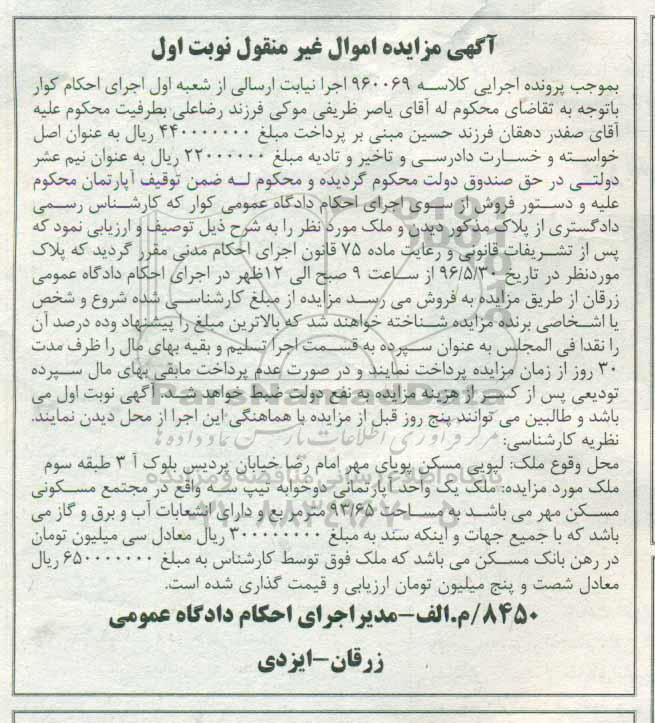 آگهی مزایده اموال غیر منقول نوبت اول
بموجب پرونده اجرایی کلاسه ۹۶۰۰۶۹ اجرا نیابت ارسالی از شعبه اول اجرای احکام کوار
باتوجه به تقاضای محکوم له آقای یاسر ظریفی موکی فرزند رضاعلی بطرفیت محکوم علیه
آقای صفدر دهقان فرزند حسین مبنی بر پرداخت مبلغ ۴۴۰۰۰۰۰۰۰ ریال به عنوان اصل
خواسته و خسارت دادرسی و تاخیر و تادیه مبلغ ۲۲۰۰۰۰۰۰ ریال به عنوان نیم عشر
دولتی در حق صندوق دولت محکوم گردیده و محکوم له ضمن توقیف آپارتمان محکوم
علیه و دستور فروش از سوی اجرای احکام دادگاه عمومی کوار که کارشناس رسمی
دادگستری از پلاک مذکور دیدن و ملک مورد نظر را به شرح ذیل توصیف و ارزیابی نمود که
پس از تشریفات قانونی و رعایت ماده ۷۵ قانون اجرای احکام مدنی مقرر گردید که پلاک
موردنظر در تاریخ ۹۶/۵/۳۰ از ساعت ۹ صبح الی ۱۲ظهر در اجرای احکام دادگاه عمومی
زرقان از طریق مزایده به فروش می رسد مزایده از مبلغ کارشناسی شده شروع و شخص
یا اشخاصی برنده مزایده شناخته خواهند شد که بالاترین مبلغ را پیشنهاد وده درصد آن
را نقدا فی المجلس به عنوان سپرده به قسمت اجرا تسلیم و بقیه بهای مال را ظرف مدت
۳۰ روز از زمان مزایده پرداخت نمایند و در صورت عدم پرداخت مابقی بهای مال سپرده
تودیعی پس از کسر از هزینه مزایده به نفع دولت ضبط خواهد شد. آگهی نوبت اول می
باشد و طالبین می توانند پنج روز قبل از مزایده با هماهنگی این اجرا از محل دیدن نمایند.
نظریه کارشناسی:
محل وقوع ملک: لپویی مسکن پویای مهر امام رضا خیابان پردیس بلوک آ ۳ طبقه سوم
ملک مورد مزایده: ملک یک واحد آپارتمانی دوخوابه تیپ سه واقع در مجتمع مسکونی
مسکن مهر می باشد به مساحت ۹۳/۶۵ مترمربع و دارای انشعابات آب و برق و گاز می
باشد که با جمیع جهات و اینکه سند به مبلغ ۳۰۰۰۰۰۰۰۰ ریال معادل سی میلیون تومان
در رهن بانک مسکن می باشد که ملک فوق توسط کارشناس به مبلغ ۶۵۰۰۰۰۰۰۰ ریال
معادل شصت و پنج میلیون تومان ارزیابی و قیمت گذاری شده است.
۸۴۵۰/م.الف-مدیراجرای احکام دادگاه عمومی
زرقان-ایزدی
ParsNamadData